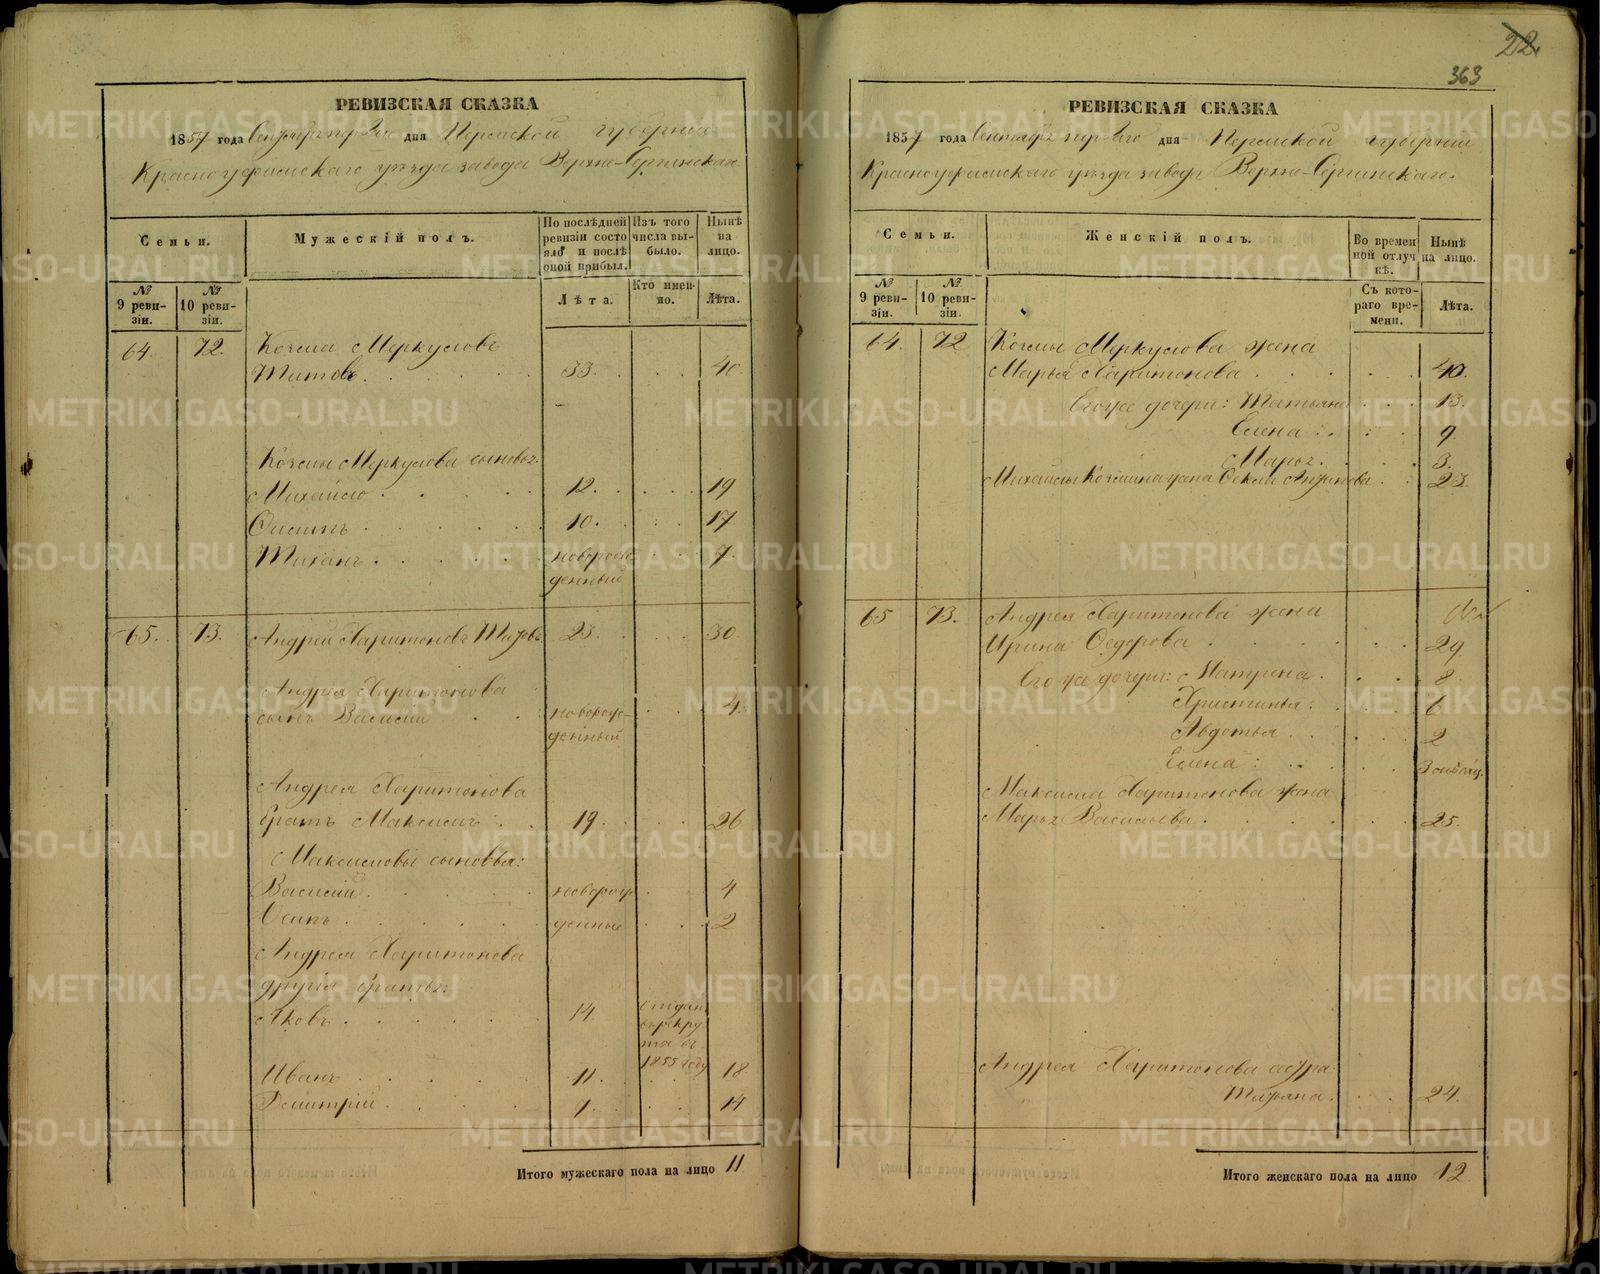 22.
363
РЕВИЗСКАЯ СКАЗКА
1857 года Сентября перваго дня Пермской губерніи
Красноуфимскаго уѣзда завода Верхне-Сергинскаго.
Семьи.
Мужескій полъ.
По послѣдней ревизіи состояло и послѣ оной прибыл.
Изъ того числа выбыло.
Нынѣ на лицо.
№ 9 ревизіи.
№ 10 ревизіи.
Лѣта.
Кто именно.
Лѣта.
64. 72. Козма Меркуловъ
Титовъ. 33. 40
Козмы Меркулова сыновья:
Михайло 12. 19
Осипъ 10. 17
новорож- 7
денный
65. 73. Андрей Харитоновъ Титовъ 23. 30
Андрея Харитонова
сынъ Василій новорож- 4
денный
Андрея Харитонова
братъ Максимъ 19 26
Максимовы сыновья:
Василій новорож 4
Осипъ денные 2
Андрея Харитонова
другія братья:
Яковъ 14 отданъ
въ рекру
та въ
1855 году
Иванъ 11. 18
Димитрій 7. 14
Итого мужескаго пола на лицо 11.
РЕВИЗСКАЯ СКАЗКА
1857 года Сентября перваго дня Пермской губерніи
Красноуфимскаго уѣзда завода Верхне-Сергинскаго.
Семьи.
Женскій полъ.
Во временной отлучкѣ.
Нынѣ на лицо.
№ 9 ревизіи.
№ 10 ревизіи.
Съ котораго времени.
Лѣта.
64. 72 Козмы Меркулова жена
Марья Харитонова 40.
Его же дочери: Татьяна 13.
Елена 9
Марья 3.
Михайлы Козмина жена 23.
65 73. Андрея Харитонова жена
Ирина Федорова 29
Его же дочери: Матрена 8
Христинья 6
Авдотья 2
Елена 3
Максима Харитонова жена
Марья Васильева 25.
Андрея Харитонова сестра
Татьяна. 24.
Итого женскаго пола на лицо 12
METRIKI.GASO-URAL.RU